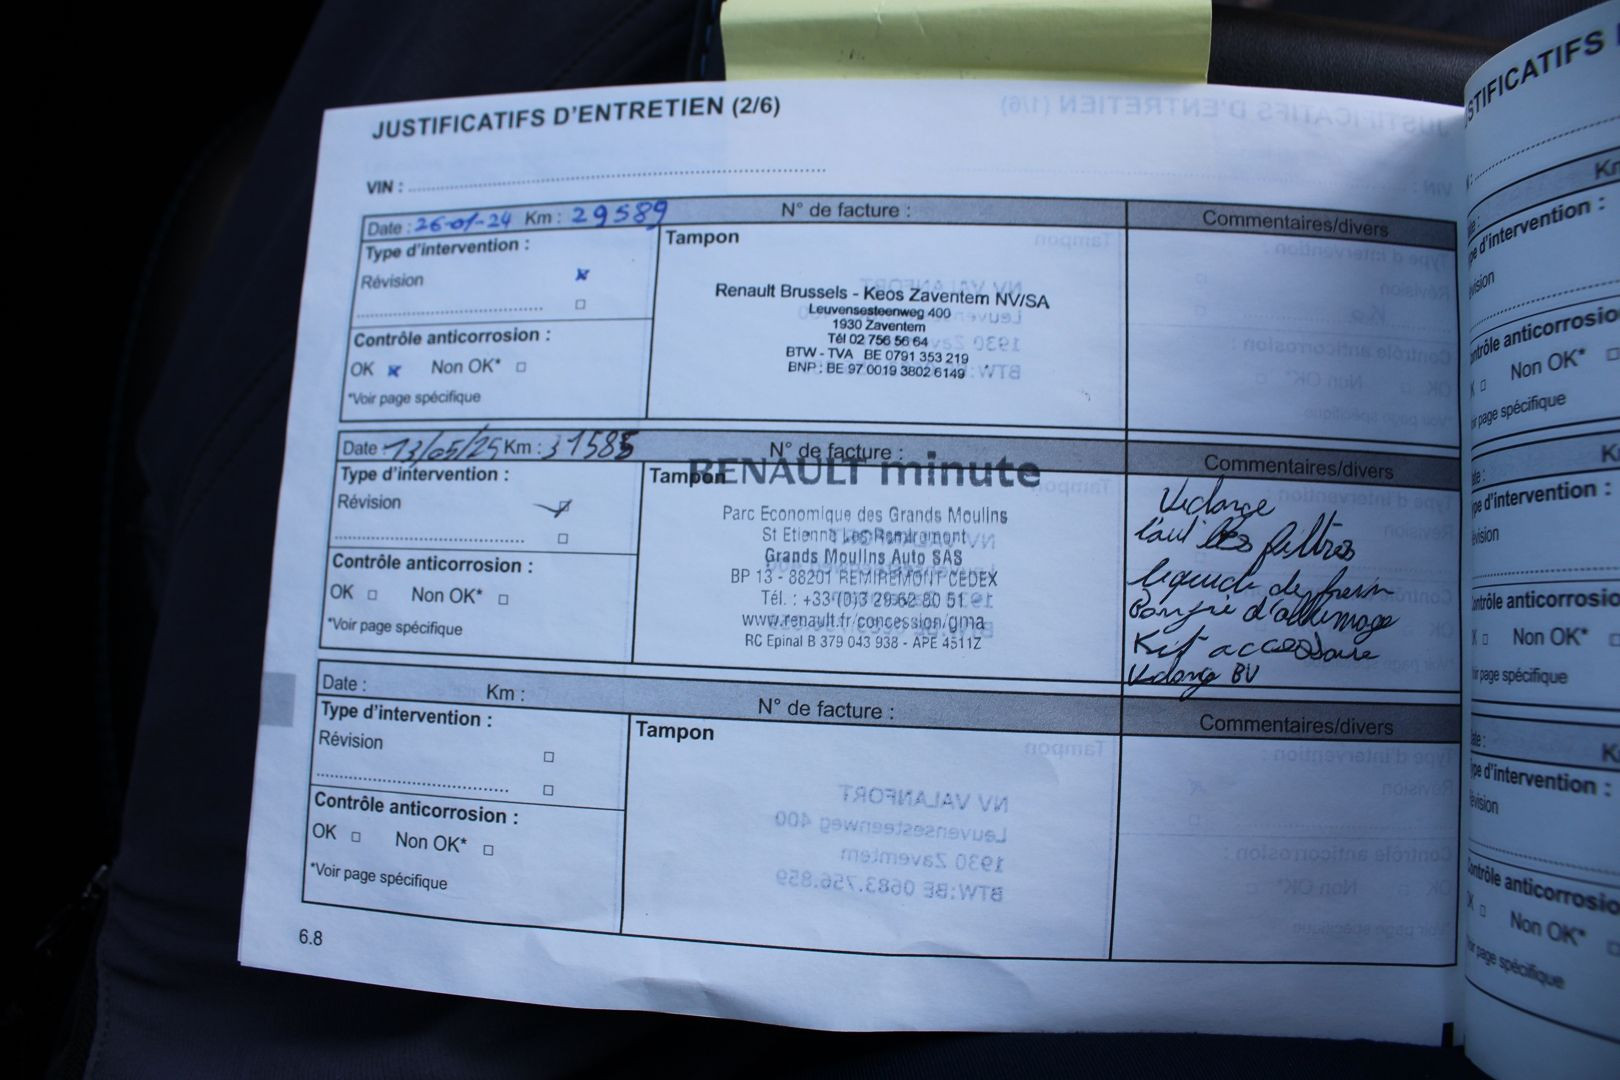 JUSTIFICATIFS D'ENTRETIEN (2/6)
VIN :
Date : 26-01-24 Km : 29589 N° de facture : Commentaires/divers
Type d'intervention :
Révision
Contrôle anticorrosion :
OK Non OK*
*Voir page spécifique
Tampon
Renault Brussels - Keos Zaventem NV/SA
Leuvensesteenweg 400
1930 Zaventem
Tél 02 756 56 64
BTW - TVA BE 0791 353 219
BNP : BE 97 0019 3802 6149
Date 13/05/25 Km : 31585 N° de facture : Commentaires/divers
Type d'intervention :
Révision
Contrôle anticorrosion :
OK Non OK*
*Voir page spécifique
Tampon
RENAULT minute
Parc Economique des Grands Moulins
St Etienne Les Remiremont
Grands Moulins Auto SAS
BP 13 - 88201 REMIREMONT CEDEX
Tél. : +33 (0)3 29 62 80 51
www.renault.fr/concession/gma
RC Epinal B 379 043 938 - APE 4511Z
Vidange
les filtres
liquide de frein
Bougie d'allumage
Kit accessoire
Vidange BV
Date : Km : N° de facture : Commentaires/divers
Type d'intervention :
Révision
Contrôle anticorrosion :
OK Non OK*
*Voir page spécifique
Tampon
6.8
STIFICATIFS
Km
type d'intervention :
vision
ontrôle anticorrosio
Non OK*
oir page spécifique
ate :
ype d'intervention :
vision
ontrôle anticorrosio
Non OK*
oir page spécifique
ate :
ype d'intervention :
vision
ontrôle anticorrosio
Non OK*
oir page spécifique